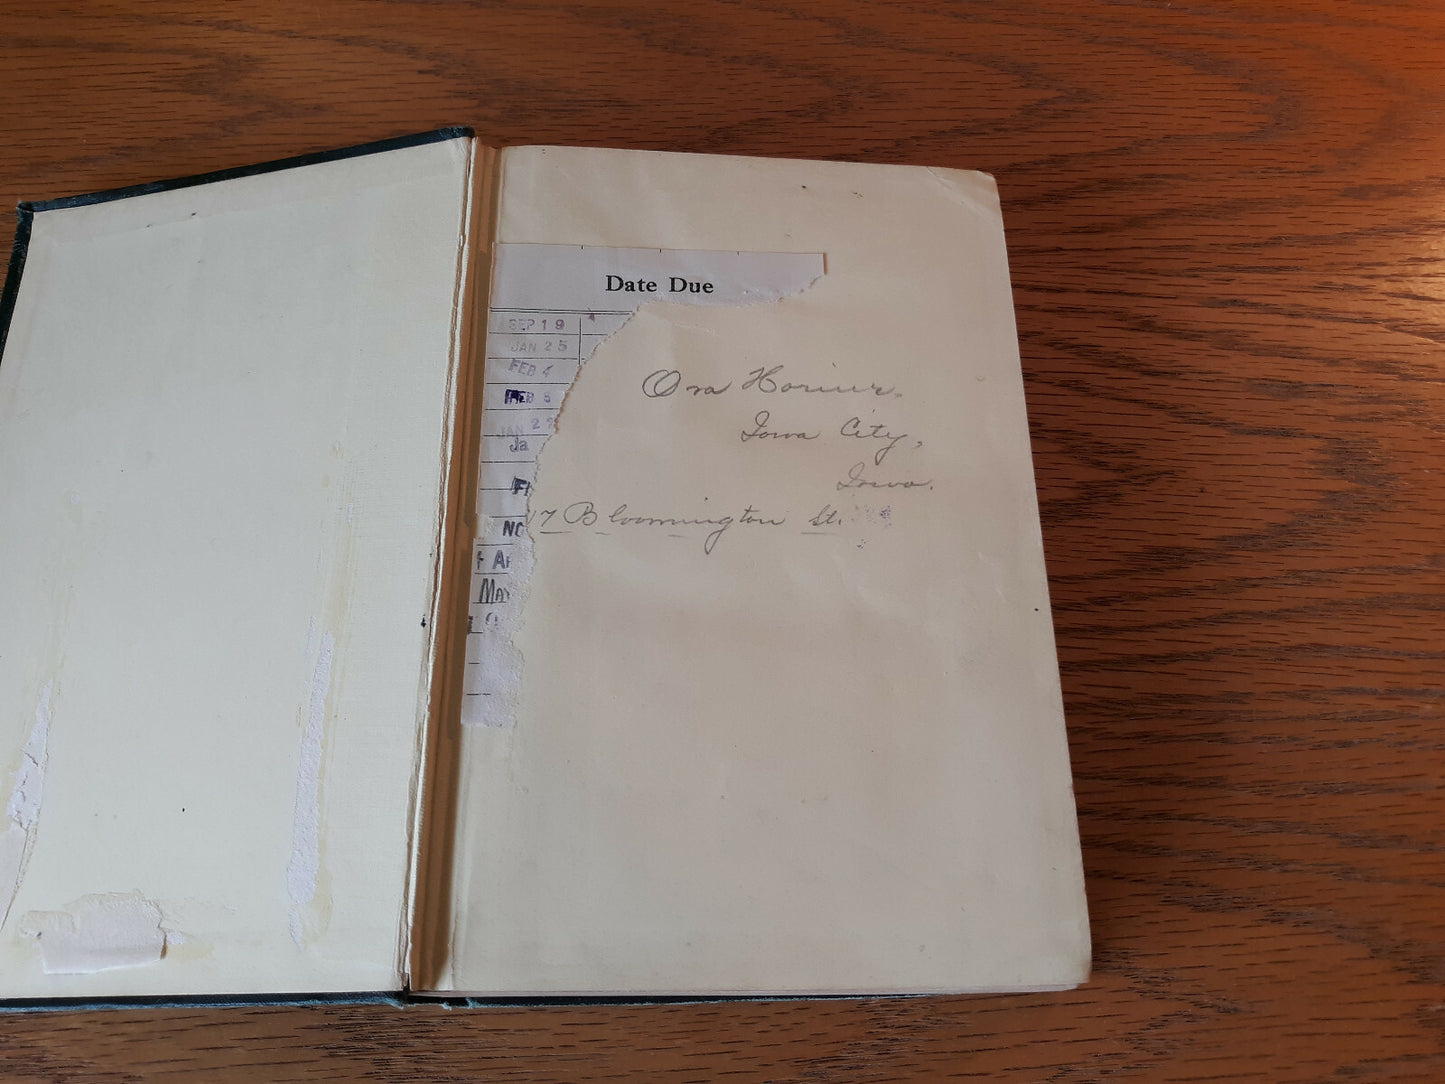 Date Due
SEP 19
JAN 25
FEB 4
FEB 5
JAN 2
Ja
F
NO
MAY
Ora
Iowa City,
Iowa.
17 Bloomington St.